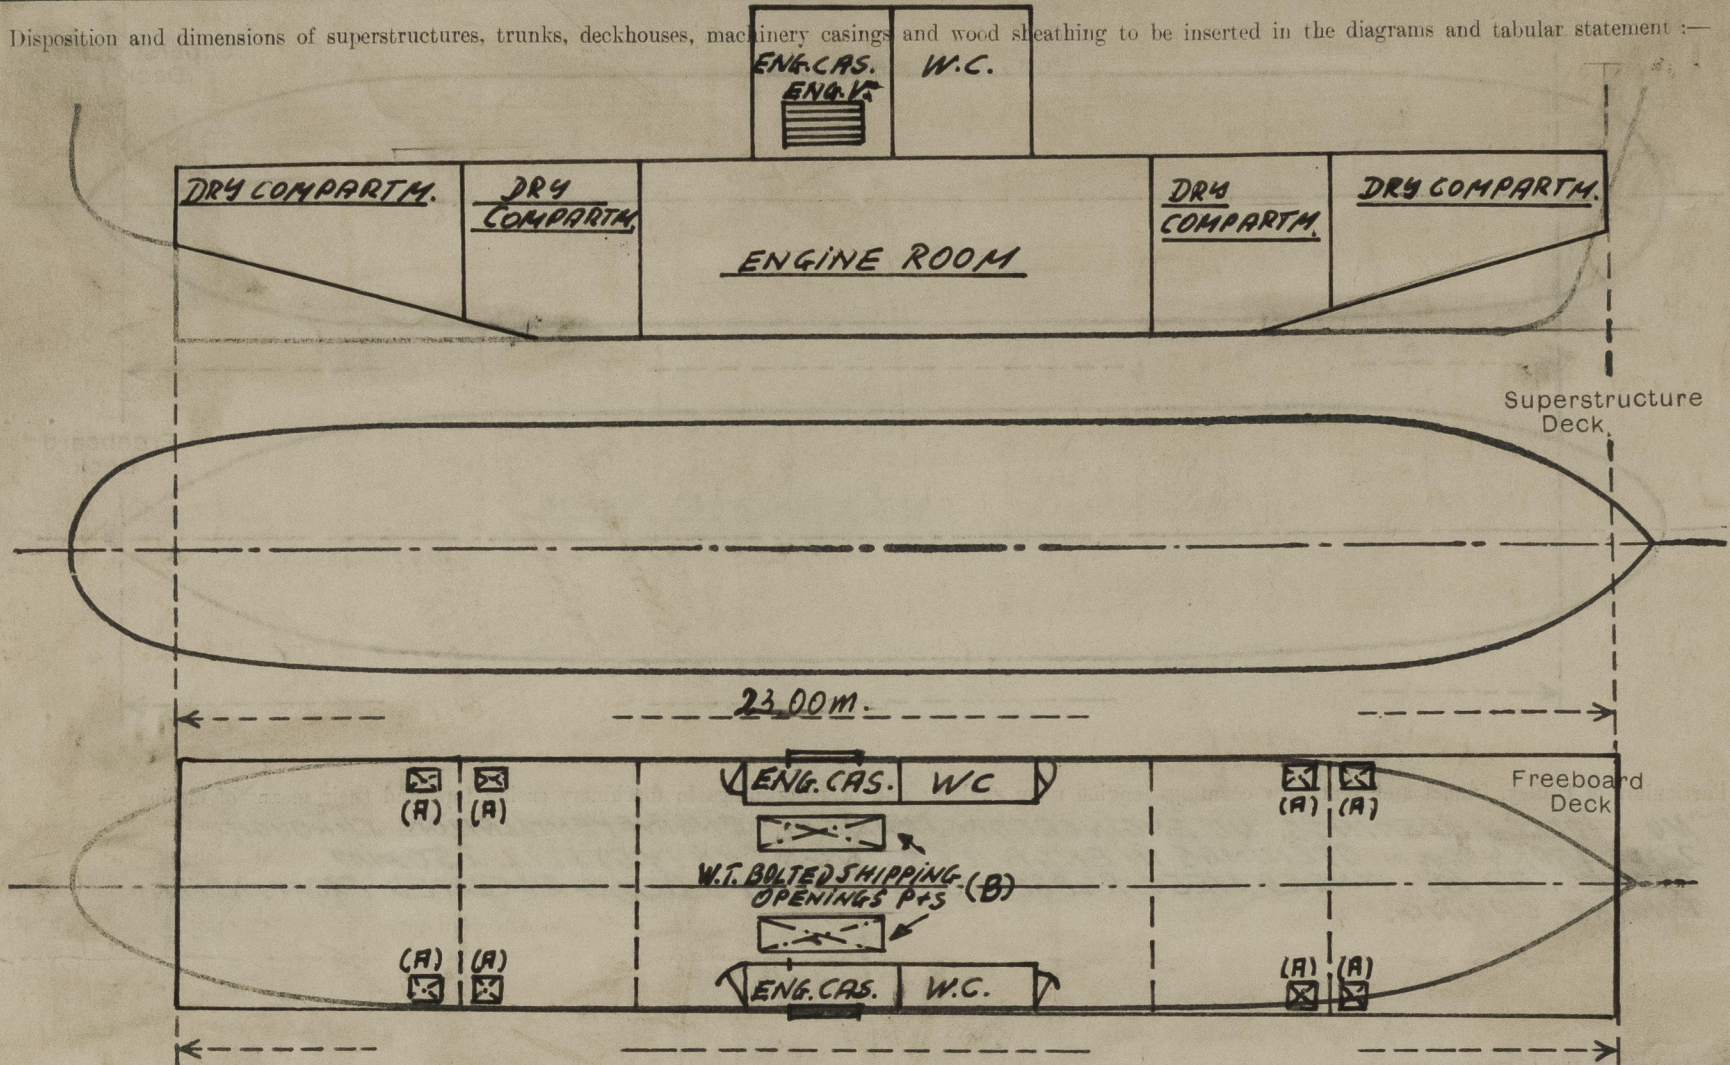 Disposition and dimensions of superstructures, trunks, deckhouses, machinery casings and wood sheathing to be inserted in the diagrams and tabular statement :—
ENG.CAS. W.C.
ENG.
DRY COMPARTM.
DRY
COMPARTM.
ENGINE ROOM
DRY
COMPARTM.
DRY COMPARTM.
Superstructure
Deck.
23.00m.
ENG.CAS. WC
Freeboard
Deck
(A) (A) (A) (A)
W.T. BOLTED SHIPPING
OPENINGS P+S (B)
(A) (A) (A) (A)
ENG.CAS. W.C.